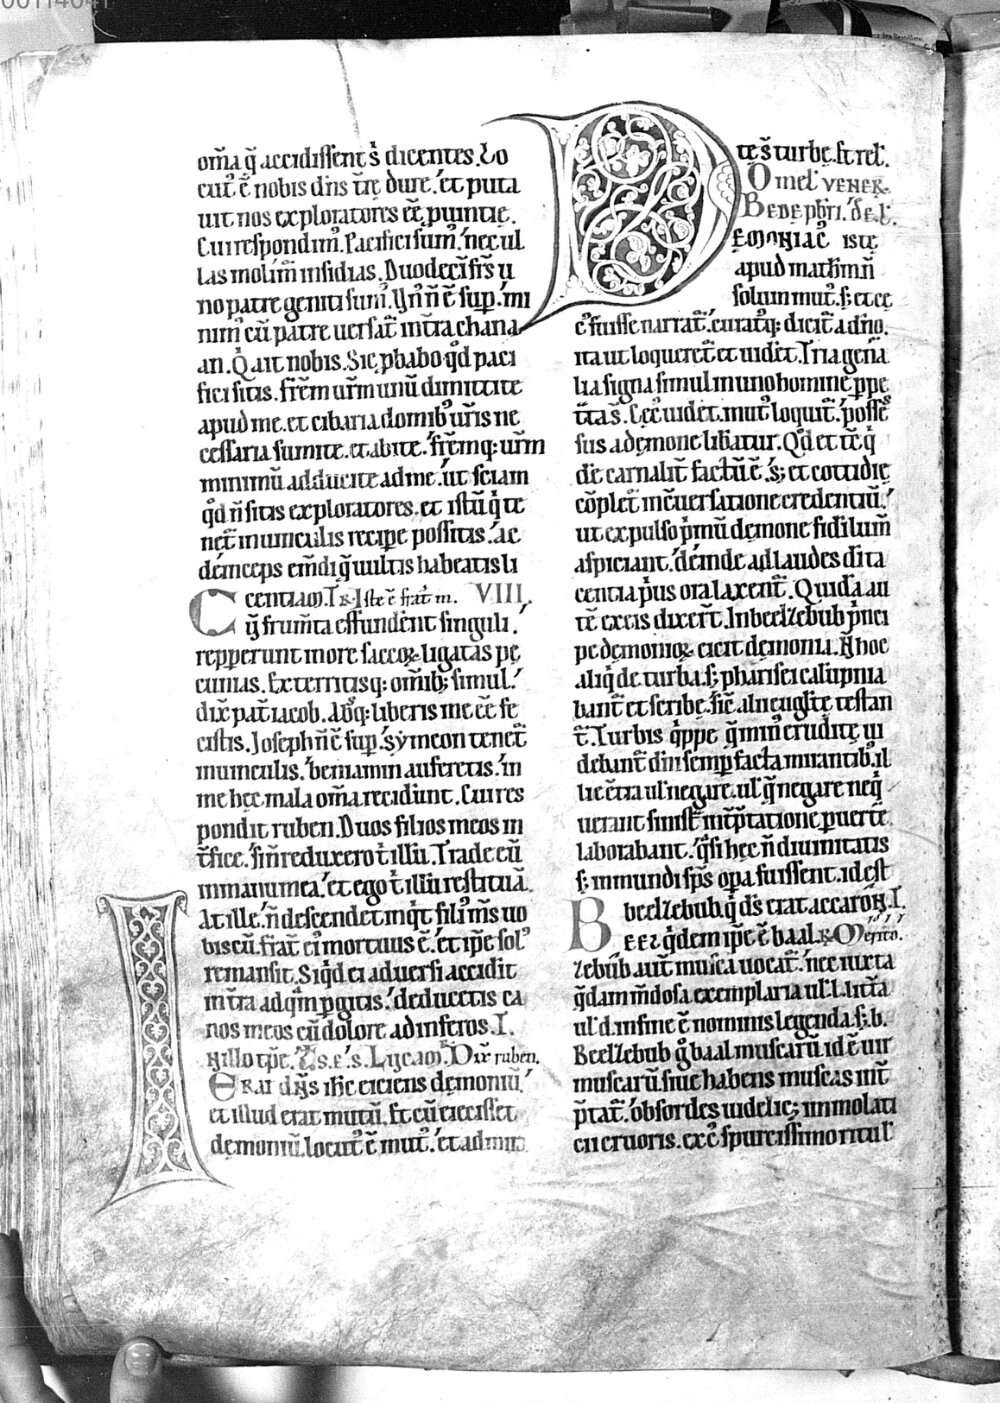 om̄a q̄ accidissent s̄ dicentes. Lo
cut᷒ ē nobis dn̄s tr̄ę dure. et puta
uit nos exploratores ēē puintię.
Cui respondim᷒. Pacifici sum᷒. nec ul
las molim᷒ insidias. Duodeci fr̄s u
no patre geniti sum᷒. Vn᷒ n̄ ē sup̄. mi
nim᷒ cū patre uersat᷒ in tr̄a chana
an. Q̇ ait nobis. Sic p̄babo q̇d paci
fici sitis. Fr̄em ur̄m unū dimittite
apud me. et cibaria domib᷒ ur̄is ne
cessaria sumite. et abite. fr̄emq; ur̄m
minimū adducite ad me. ut sciam
q̇d n̄ sitis exploratores. et istū q̇ te
net᷒ in uinculis recipe possitis. ac
deinceps em̄di q̄ uultis habeatis li
centiam. R. Iste ē frat̄ m. VIII.
Cq̄ frum̄ta effunderent singuli.
reppererunt more saccoꝝ ligatas pe
cunias. Exterritisq; om̄ib; simul.
dix̄ pat̄ iacob. Absq; liberis me ēē fe
cistis. Ioseph n̄ ē sup̄. symeon tenet᷒
in uinculis. beniamin auferetis. in
me hęc mala om̄a reciderunt. Cui res
pondit ruben. Duos filios meos in
t̄fice. si n̄ reduxero t̄ illū. Trade eū
in manu mea. et ego t̄ illū restituā.
At ille. n̄ descendet inq̇t fili᷒ m̄s uo
biscū. frat̄ ei᷒ mortuus ē. et ip̄e sol᷒
remansit. Siq̇d ei aduersi accidit
in tr̄a ad qm̄ p̄gitis. deducetis ca
nos meos cū dolore ad inferos. I
N illo tp̄r. S. e. s. Lucam. Dix̄ ruben.
ERAT dn̄s ih̄c eiciens demoniū.
et illud erat mutū. Et cū eiecisset
demoniū. locut᷒ ē mut᷒. et admira
te s̄ turbę. Et rel᷒.
Omel᷒ VENER.
BEDE pbr̄i. de l᷒.
DEMONIAC᷒ iste
apud matheum
solum mut᷒. s; et ce
c᷒ fuisse narrat᷒. curat᷒q; dicit᷒ a dn̄o.
ita ut loqueret᷒ et uidēt. Tria gen̄a
lia signa simul in uno homine ppe
trata s̄. Cec᷒ uidet. mut᷒ loquit᷒. posses
sus a demone lib̄atur. Qd et tc̄ q̇
de carnalit̄ factū ē. s; et cottidie
cōplet᷒ in cūersatione credentiū.
ut expulso p̄mū demone fidei lum̄
aspiciant. deinde ad laudes di ta
centia p̄us ora laxent᷒. Quidā au
tē ex eis dixer̄t. In beelzebub p̄nci
pe demonioꝝ eicit demonia. N̄ hoc
aliq̇ de turba. s; pharisei calūpnia
bant᷒ et scribe. sic alii euglīste testan
t᷒. Turbis q̇ppe q̄ min᷒ eruditę ui
debant᷒ dn̄i semp̄ facta mirantib᷒. il
li ec̄tra ul negare. ul q̄ negare neq̇
uerant sinist̄ in tp̄tatione puertere
laborabant. q̇si hęc n̄ diuinitatis
s; inmundi sp̄s opa fuissent. id est
Beelzebub q̇ ds̄ erat accaron. I
BEEZ q̇dem ip̄e ē baal. R. Merito.
zebub aut̄ musca uocat᷒. nec iuxta
q̄dam m̄dosa exemplaria ul l. littera
ul d. in fine ē nominis legenda. s; b.
Beelzebub g̊ baal muscarū id ē uir
muscarū siue habens muscas int̄
p̄tat᷒. ob sordes uidelic; inmolati
cii cruoris. ex c᷒ spurcissimo ritu ul